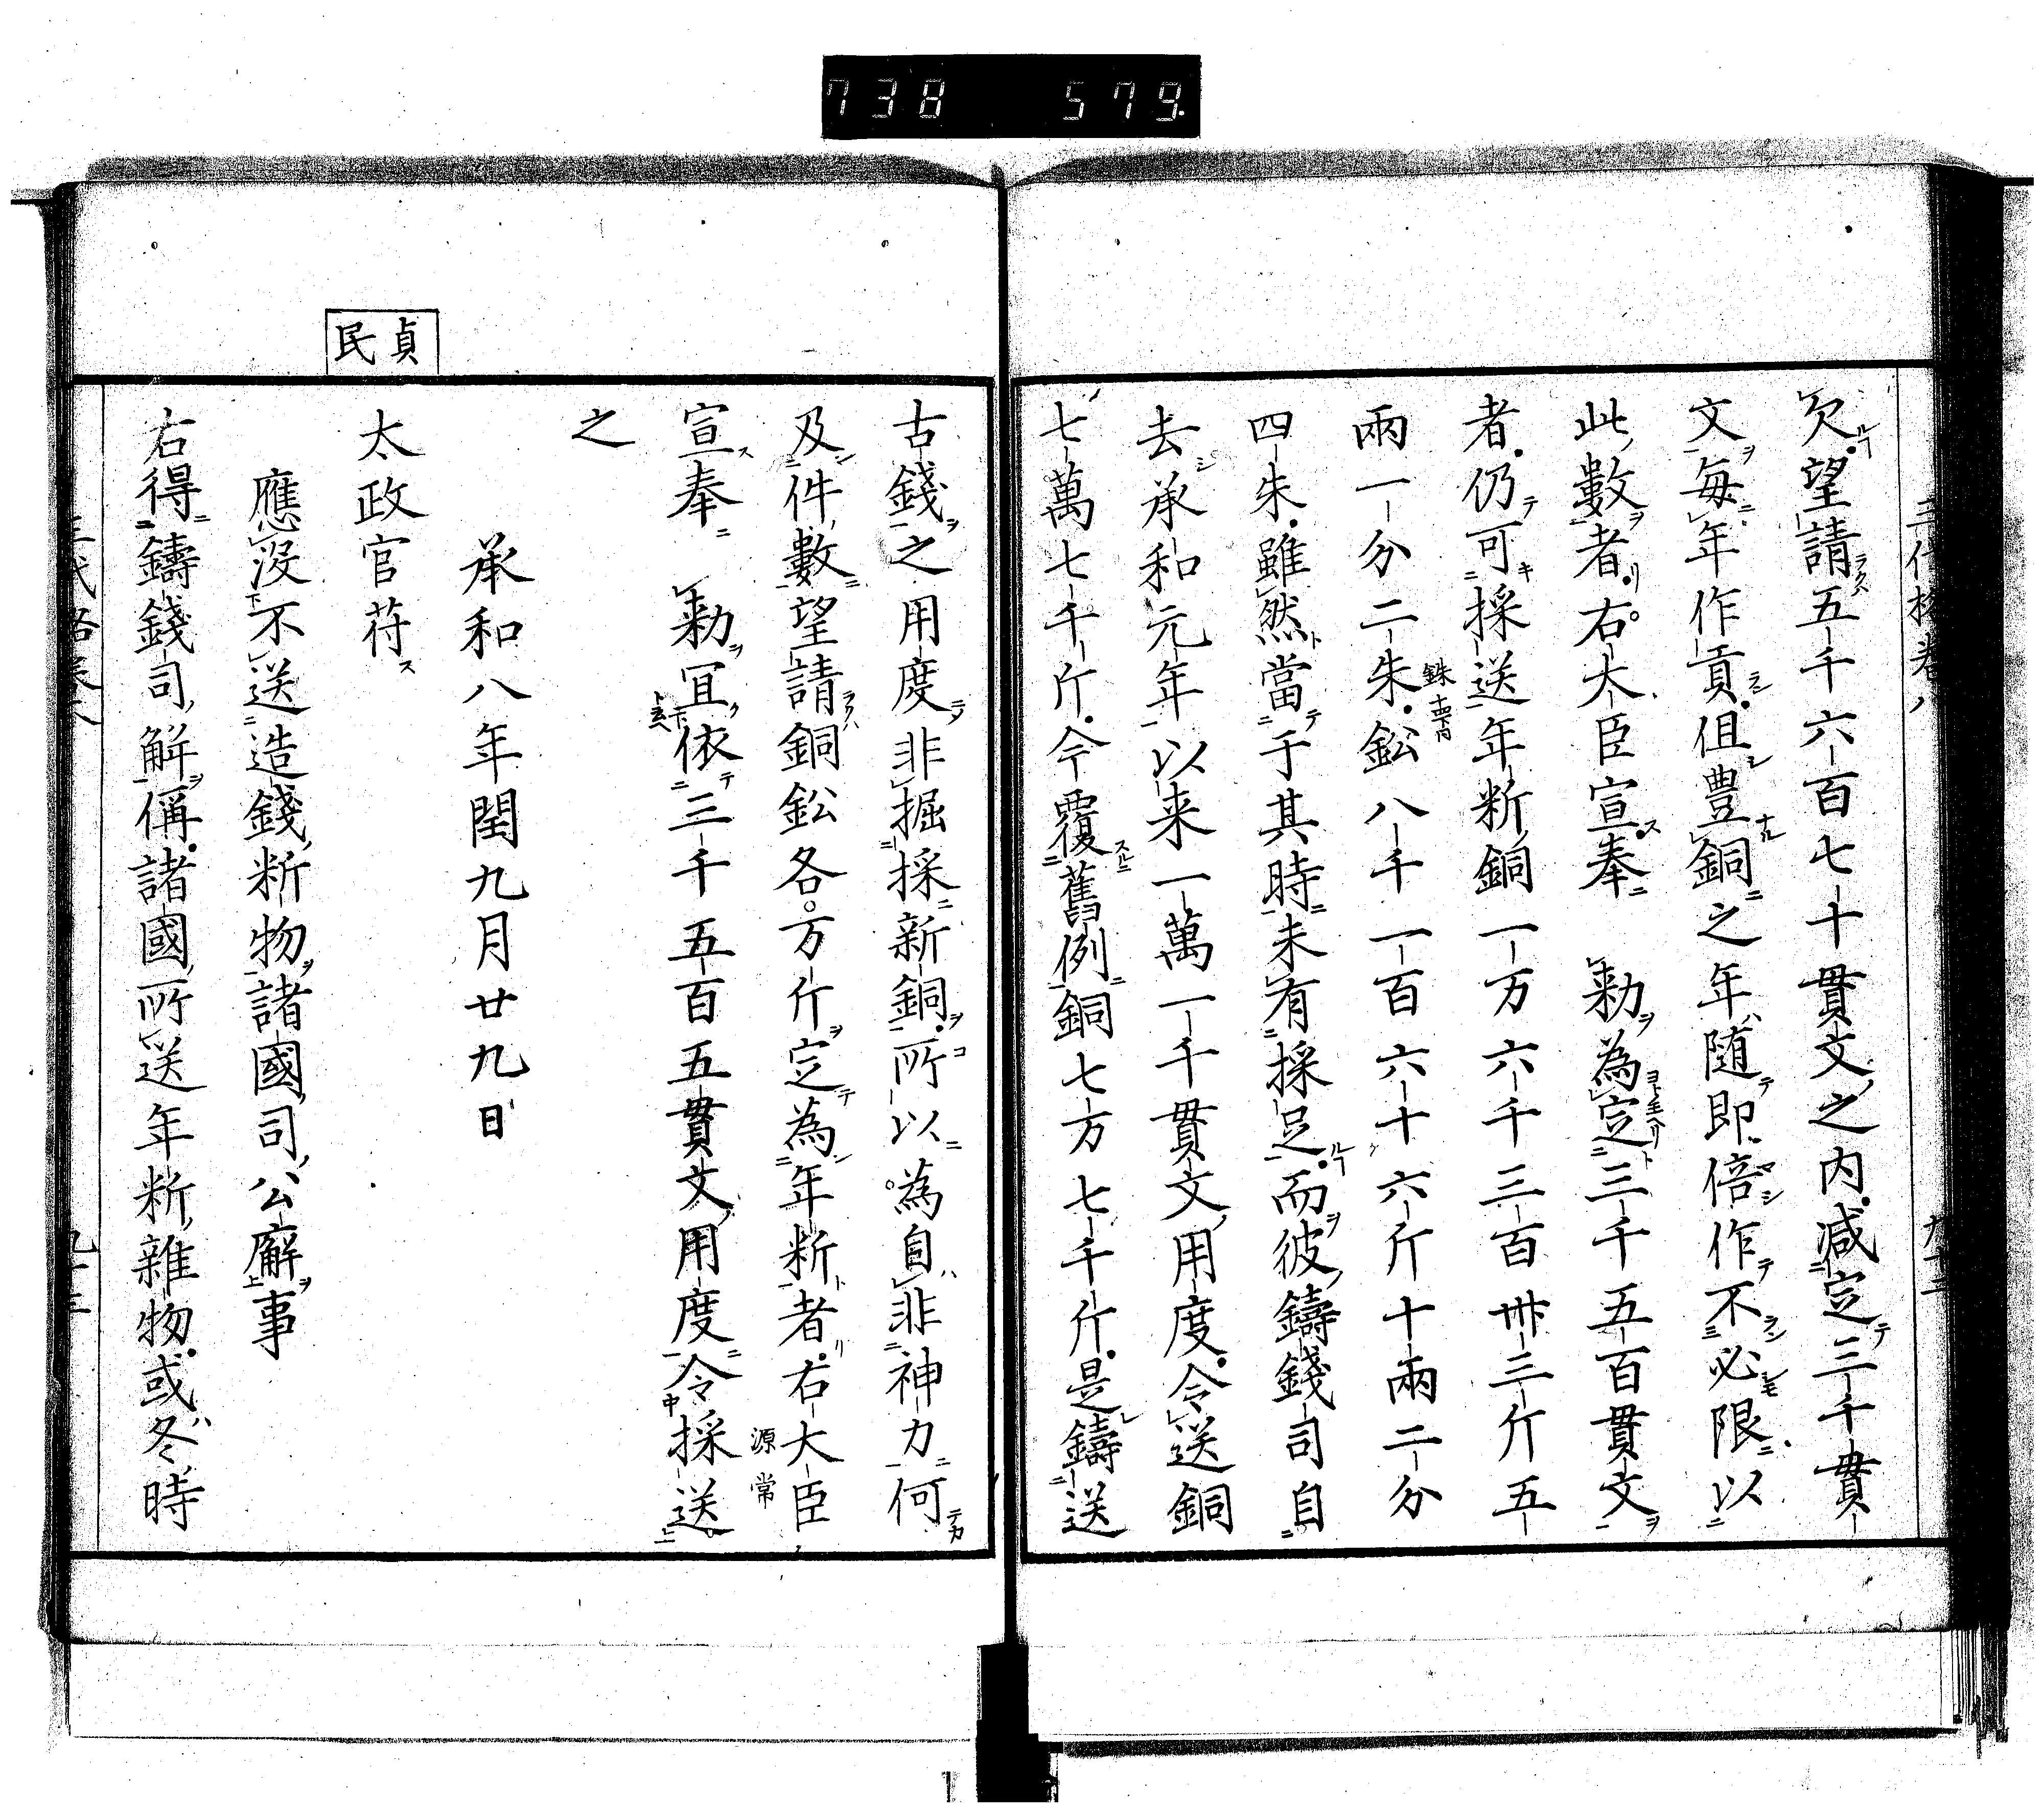 738 579
欠望請五千六百七十貫文之内減定三千貫
文毎年作貢但豊銅之年随即倍作不必限以
此數者右大臣宣奉　勅為定三千五百貫文
者仍可採送年斨銅一万六千三百卅三斤五
兩一分二朱鈆八千一百六十六斤十兩二分
四朱雖然當于其時未有採足而彼鑄錢司自
去承和元年以来一萬一千貫文用度令送銅
七萬七千斤今覆舊例銅七万七千斤是鑄送
古錢之用度非掘採新銅所以為自非神力何
及件數望請銅鈆各万斤定為年斨者右大臣
源常
宣奉　勅冝依三千五百五貫文用度令採送
之
承和八年閏九月廿九日
貞民
太政官苻
應没不送造錢斨物諸國司公廨事
右得鑄錢司解偁諸國所送年斨雜物或冬時